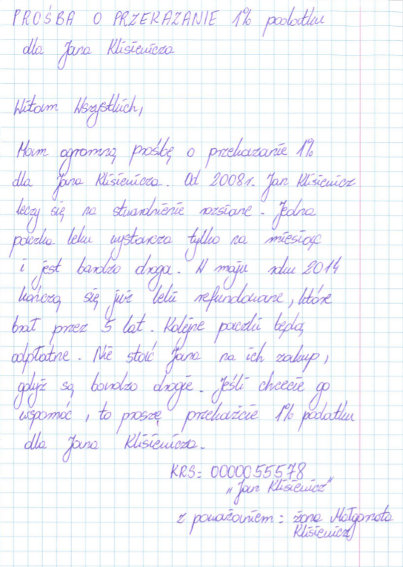 PROŚBA O PRZEKAZANIE 1% podatku
dla Jana Klisiewicza
Witam Wszystkich,
Mam ogromną prośbę o przekazanie 1%
dla Jana Klisiewicza. Od 2008r. Jan Klisiewicz
leczy się na stwardnienie rozsiane. Jedna
paczka leku wystarcza tylko na miesiąc
i jest bardzo droga. W maju roku 2014
kończą się już leki refundowane, które
brał przez 5 lat. Kolejne paczki będą
odpłatne. Nie stać Jana na ich zakup,
gdyż są bardzo drogie. Jeśli chcecie go
wspomóc, to proszę przekażcie 1% podatku
dla Jana Klisiewicza.
KRS: 0000055578
"Jan Klisiewicz"
z poważaniem: żona Małgorzata
Klisiewicz